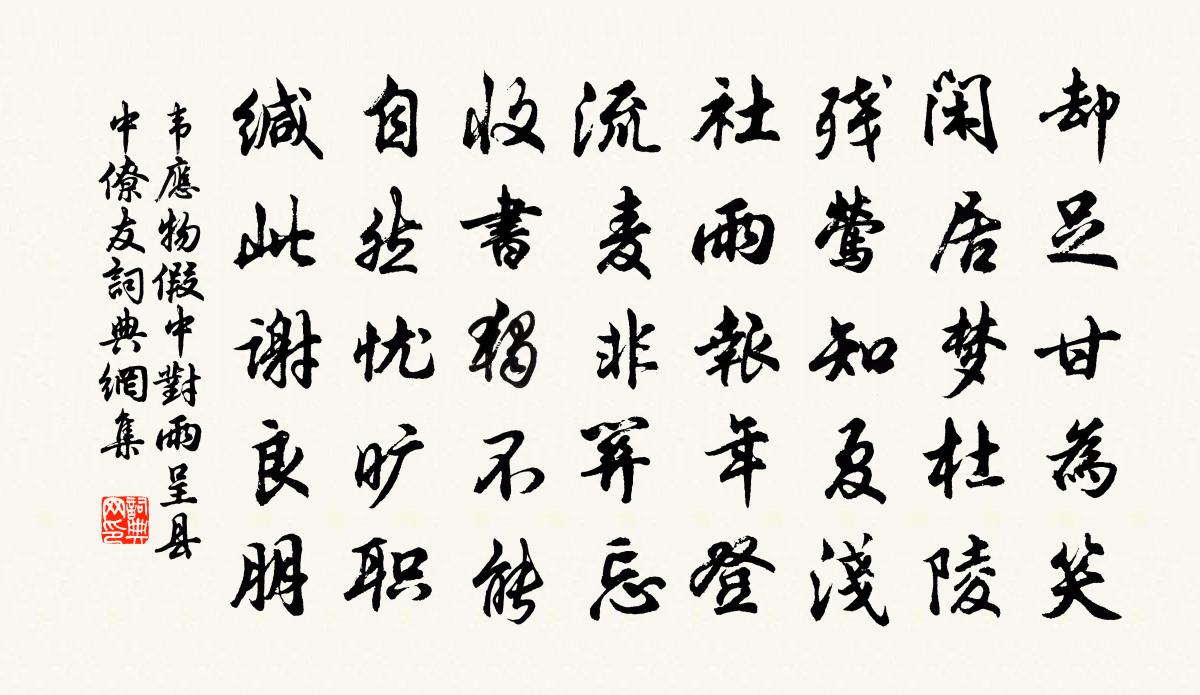 却足甘為笑
闲居梦杜陵
残莺知夏浅
社雨報年登
流麦非関忘
收書獨不能
自然忧旷职
缄此谢良朋
韦應物假中對雨呈县
中僚友詞典網集
詞典
网印